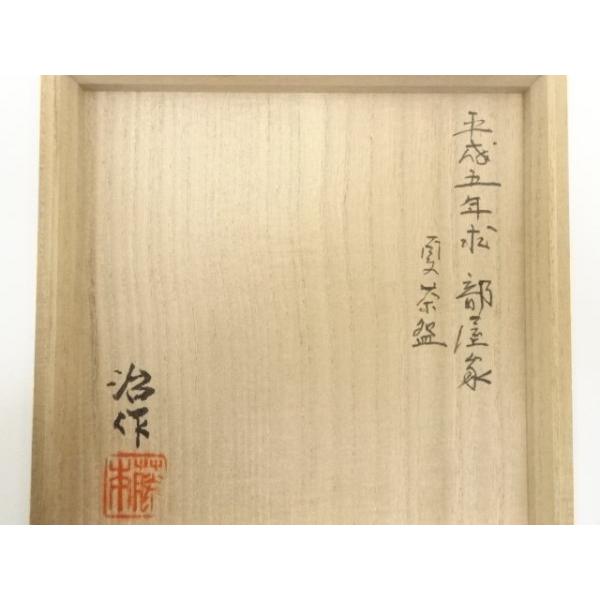 平成五年 部屋家
夏茶盌
治作
藤本